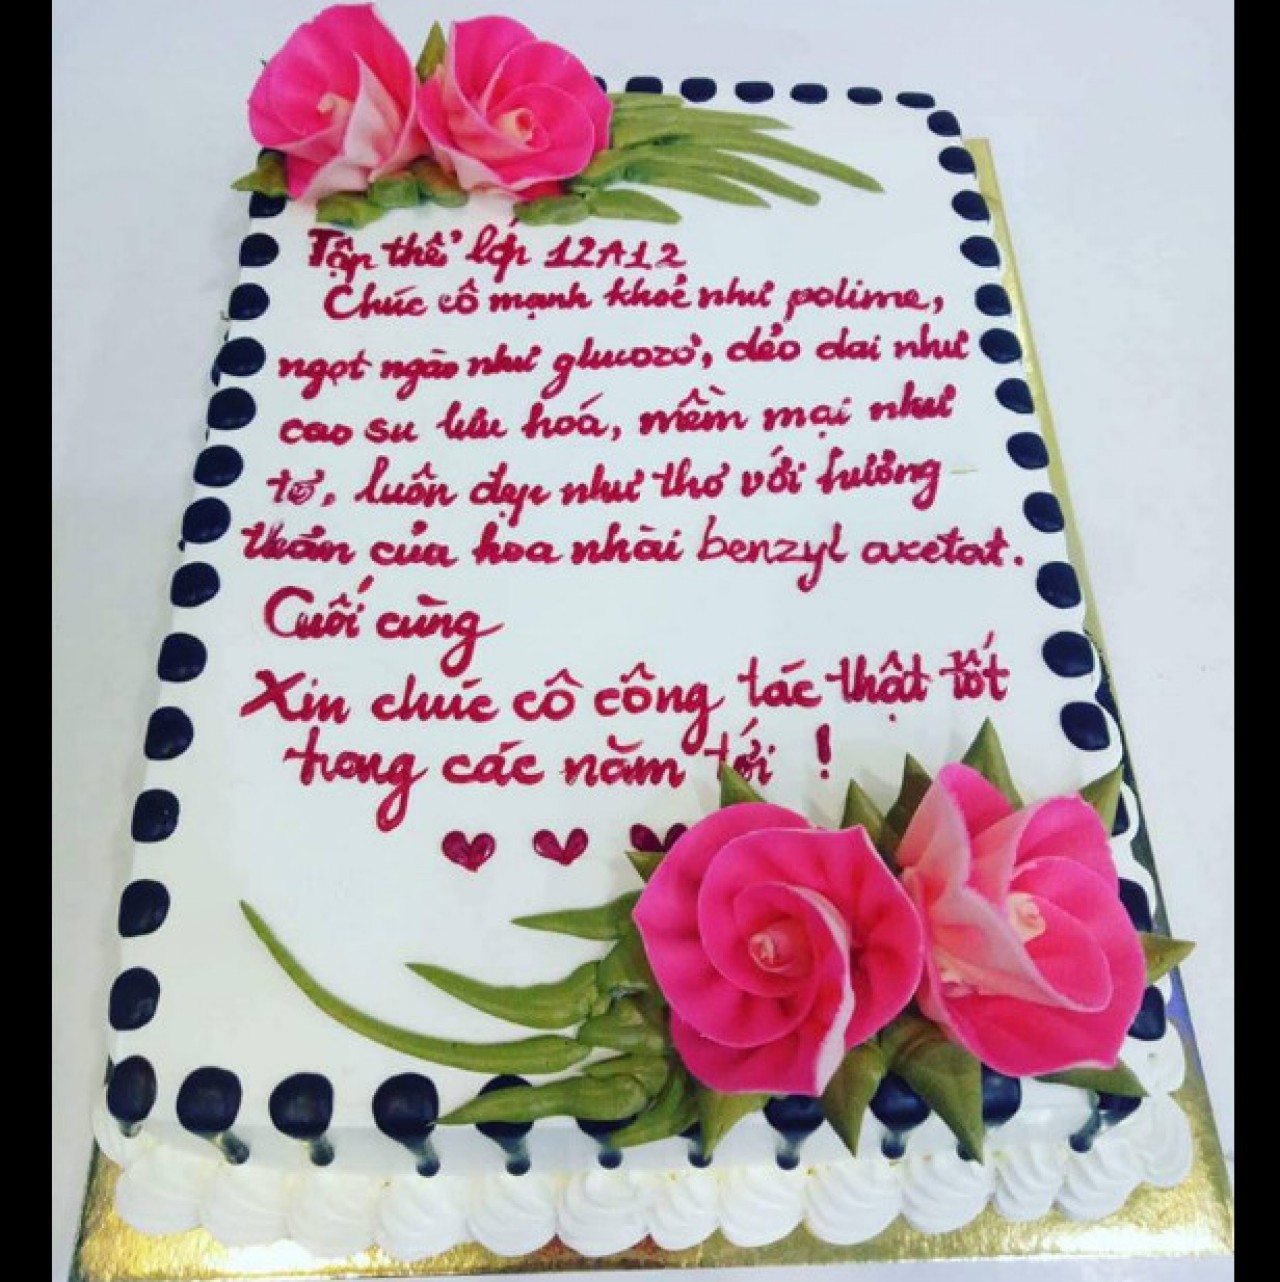 Tập thể lớp 12A12
Chúc cô mạnh khoẻ như polime,
ngọt ngào như glucozơ, dẻo dai như
cao su lưu hoá, mềm mại như
tơ, luôn đẹp như thơ với hương
thơm của hoa nhài benzyl axetat.
Cuối cùng
Xin chúc cô công tác thật tốt
trong các năm tới !